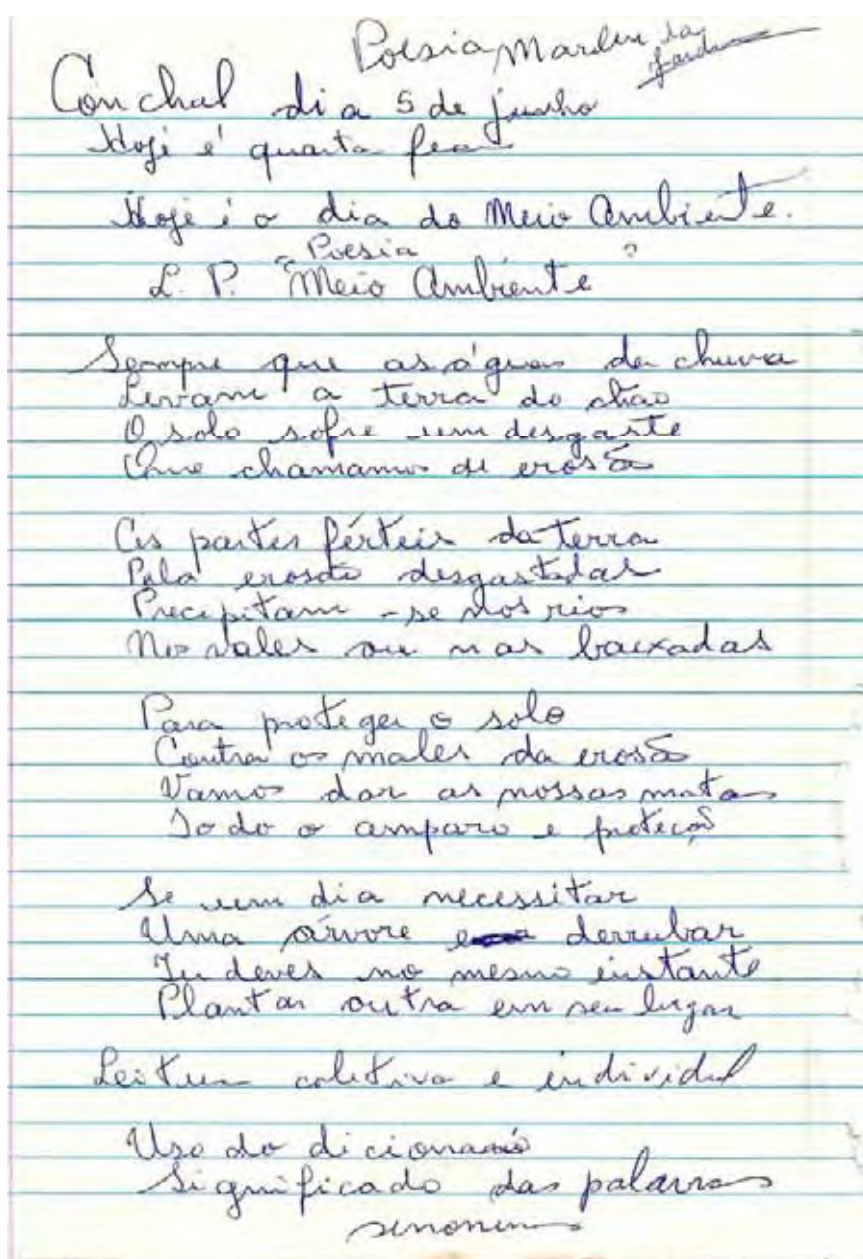 Poesia
Conchal dia 5 de junho
Hoje é quarta feira
Hoje é o dia do Meio Ambiente.
Poesia
L. P. "Meio Ambiente"
Sempre que as águas da chuva
Levam a terra do chão
O solo sofre um desgaste
Que chamamos de erosão
As partes férteis da terra
Pela erosão desgastadas
Precipitam-se nos rios
Nos vales ou nas baixadas
Para proteger o solo
Contra os males da erosão
Vamos dar as nossas matas
Todo o amparo e proteção
Se um dia necessitar
Uma árvore derrubar
Tu deves no mesmo instante
Plantar outra em seu lugar
Leitura coletiva e individual
Uso do dicionario
Significado das palavras
sinonimos